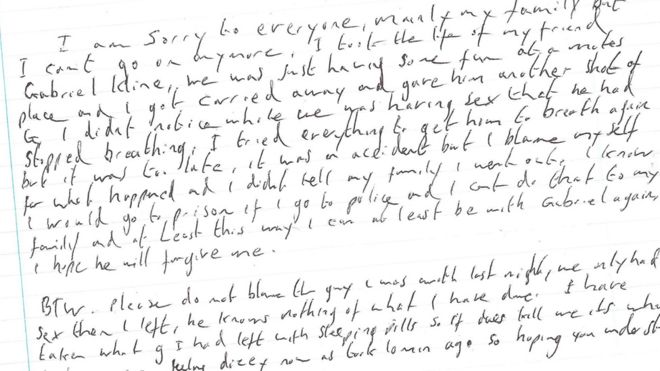 I am sorry to everyone, mainly my family but
I cant go on anymore, I took the life of my friend
Gabriel Kline, we was just having some fun at a mates
place and I got carried away and gave him another shot of
G, I didnt notice while we was having sex that he had
stopped breathing, I tried everything to get him to breath again
but it was to late, it was an accident but I blame myself
for what happened and I didnt tell my family I went out, I know
I would go to prison if I go to police and I cant do that to my
family and at least this way I can at least be with Gabriel again,
I hope he will forgive me.
BTW. Please do not blame the guy I was with last night, we only had
sex then I left, he knows nothing of what I have done. I have
taken what g I had left with sleeping pills so if it does kill me its wha
feeling dizzy now as took 10 min ago so hoping you underst